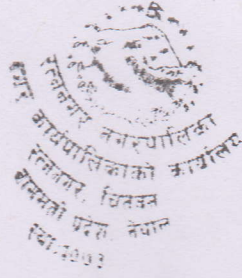 रत्ननगर नगरपालिका
नगर कार्यपालिकाको कार्यालय
रत्ननगर, चितवन
बागमती प्रदेश, नेपाल
स्था.२०७३